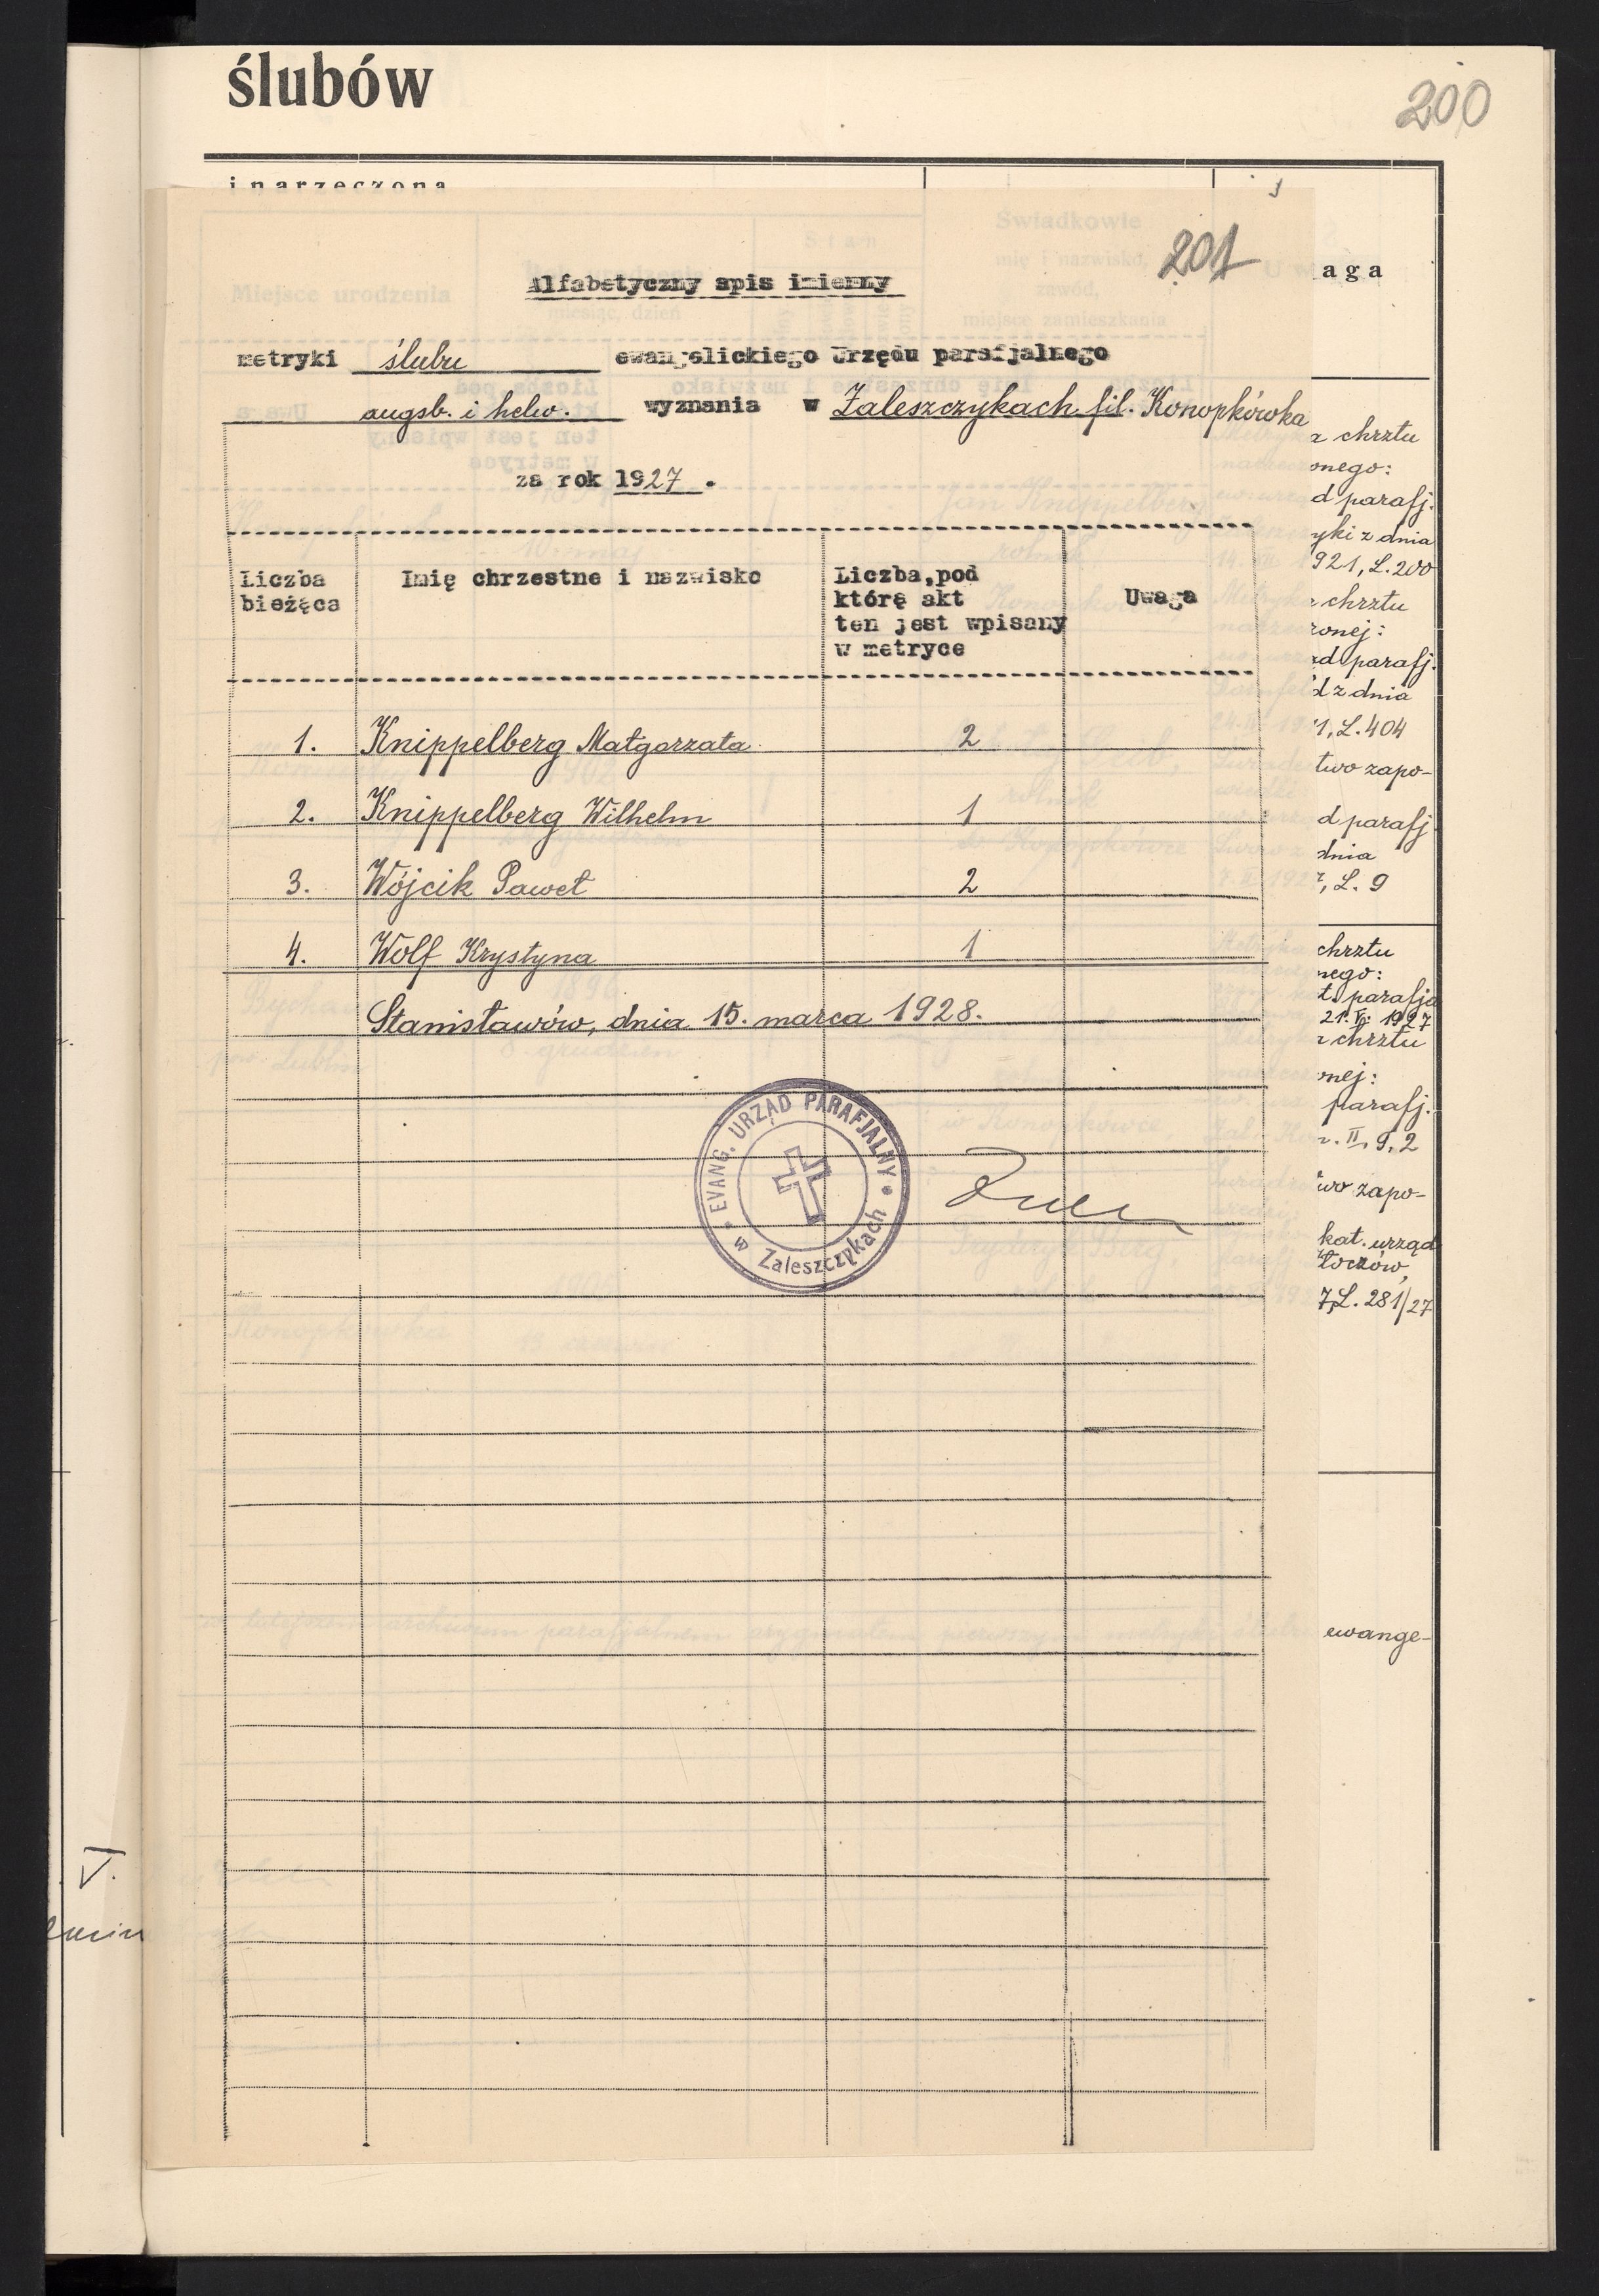 ślubów
200
i narzeczona
201
aga
Alfabetyczny spis imienny
metryki ślubu ewangelickiego Urzędu parafjalnego
augsb. i helw. wyznania w Zaleszczykach fil. Konopkówka
za rok 1927.
Liczba bieżąca
Imię chrzestne i nazwisko
Liczba,pod
którą akt
ten jest wpisany
w metryce
Uwaga
1. Knippelberg Małgorzata 2
2. Knippelberg Wilhelm 1
3. Wójcik Paweł 2
4. Wolf Krystyna 1
Stanisławów, dnia 15. marca 1928.
EVANG. URZĄD PARAFJALNY
w Zaleszczykach
a chrztu
onego:
d parafj.
yki z dnia
921, L. 200
chrztu
onej:
d parafj.
d z dnia
1, L. 404
two zapo-
d parafj.
dnia
, L. 9
chrztu
nego:
t. parafja
21. V. 1927
chrztu
nej:
parafj.
II, 9, 2
wo zapo-
kat. urząd
łoczów,
7, L. 281/27
ewange-
V.